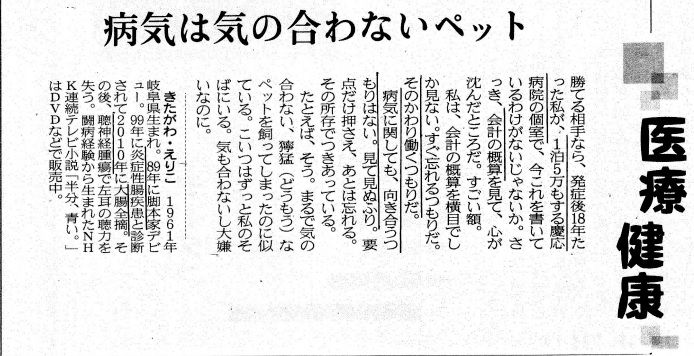 病気は気の合わないペット
医療
健康
勝てる相手なら、発症後18年た
った私が、1泊5万もする慶応
病院の個室で、今これを書いて
いるわけがないじゃないか。さ
っき、会計の概算を見て、心が
沈んだところだ。すごい額。
私は、会計の概算を横目でし
か見ない。すぐ忘れるつもりだ。
そのかわり働くつもりだ。
病気に関しても、向き合うつ
もりはない。見て見ぬふり。要
点だけ押さえ、あとは忘れる。
その所存でつきあっている。
たとえば、そう。まるで気の
合わない、獰猛（どうもう）な
ペットを飼ってしまったのに似
ている。こいつはずっと私のそ
ばにいる。気も合わないし大嫌
いなのに。
きたがわ・えりこ　1961年
岐阜県生まれ。89年に脚本家デビ
ュー。99年に炎症性腸疾患と診断
されて2010年に大腸全摘。そ
の後、聴神経腫瘍で左耳の聴力を
失う。闘病経験から生まれたNH
K連続テレビ小説「半分、青い。」
はDVDなどで販売中。